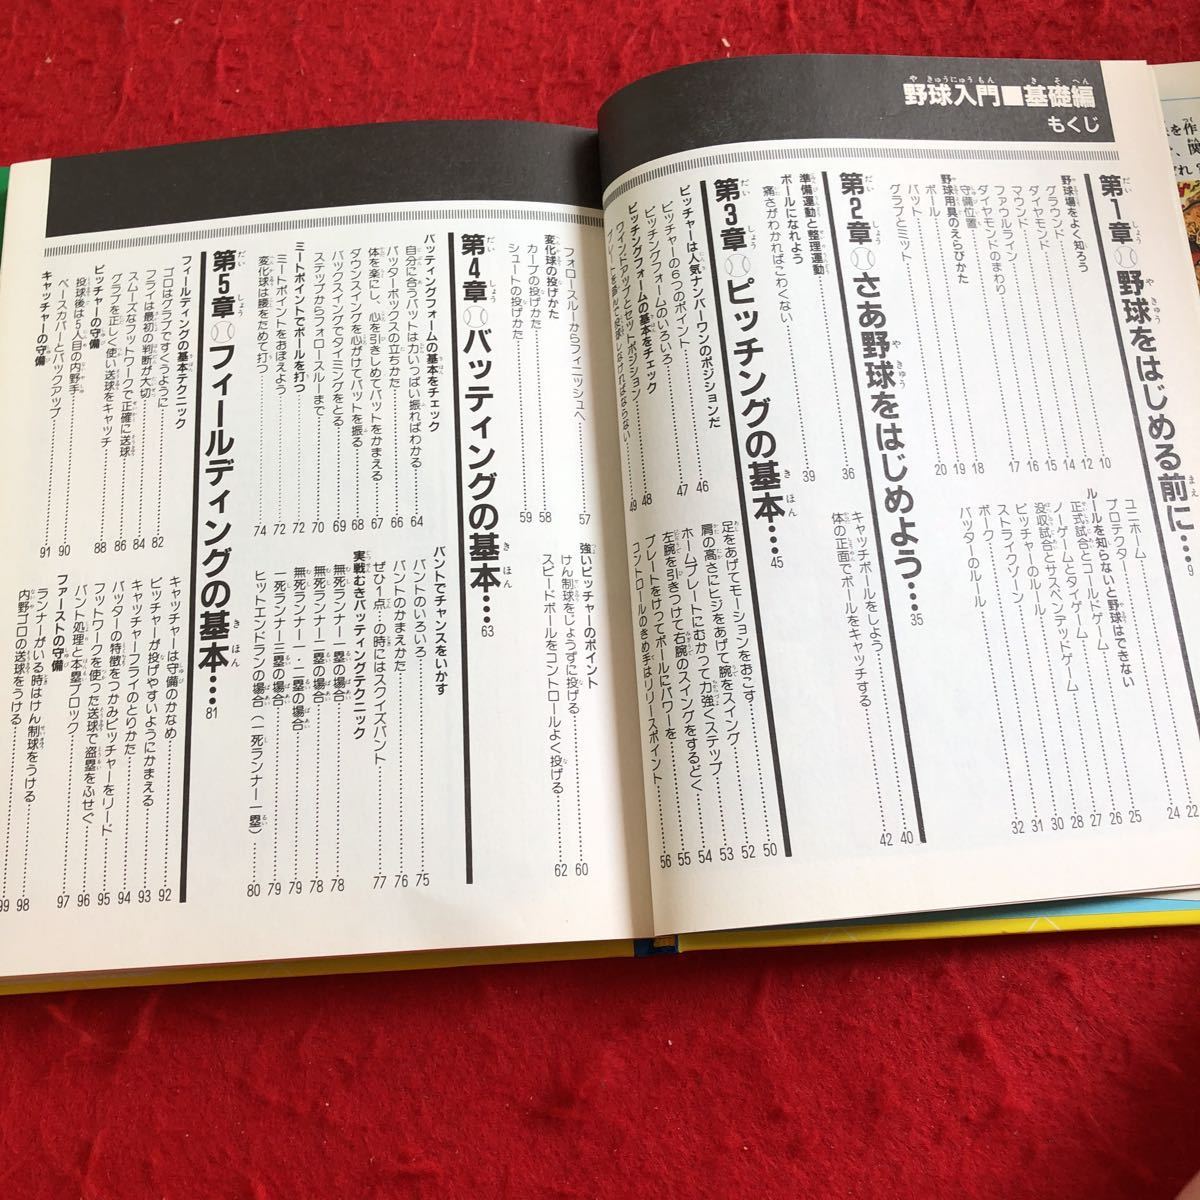 野球入門■基礎編
もくじ
第1章 野球をはじめる前に…9
野球場をよく知ろう
グラウンド 10
ダイヤモンド 12
マウンド 14
ファウルライン 15
ダイヤモンドのまわり 16
守備位置 17
野球用具のえらびかた
ボール 18
バット 19
グラブとミット 20
ユニホーム 22
プロテクター 24
ルールを知らないと野球はできない
正式試合とコールドゲーム 25
ノーゲームとタイゲーム 26
没収試合とサスペンデッドゲーム 27
ピッチャーのルール 28
ストライクゾーン 30
ボーク 31
バッターのルール 32
第2章 さあ野球をはじめよう…35
準備運動と整理運動 36
ボールになれよう
痛さがわかればこわくない 39
キャッチボールをしよう 40
体の正面でボールをキャッチする 42
第3章 ピッチングの基本…45
ピッチャーは人気ナンバーワンのポジションだ 46
ピッチャーの6つのポイント 47
ピッチングフォームのいろいろ
ピッチングフォームの基本をチェック
ワインドアップとセットポジション 48
プレートを踏んで投球しなければならない 49
足をあげてモーションをおこす 50
肩の高さにヒジをあげて腕をスイング 52
ホームプレートにむかって力強くステップ 53
左腕を引きつけて右腕のスイングをするどく 54
プレートをけってボールにパワーを 55
コントロールのきめ手はリリースポイント 56
フォロースルーからフィニッシュへ 57
変化球の投げかた
カーブの投げかた 58
シュートの投げかた 59
強いピッチャーのポイント
けん制球をじょうずに投げる 60
スピードボールをコントロールよく投げる 62
第4章 バッティングの基本…63
バッティングフォームの基本をチェック
自分に合うバットは力いっぱい振ればわかる 64
バッターボックスの立ちかた 66
体を楽にし、心を引きしめてバットをかまえる 67
ダウンスイングを心がけてバットを振る 68
バックスイングでタイミングをとる 69
ステップからフォロースルーまで 70
ミートポイントでボールを打つ
ミートポイントをおぼえよう 72
変化球は腰をためて打つ 74
バントでチャンスをいかす
バントのいろいろ 75
バントのかまえかた 76
ぜひ1点…の時にはスクイズバント 77
実戦むきバッティングテクニック
無死ランナー一塁の場合 78
無死ランナー二塁の場合 78
無死ランナー一・二塁の場合 79
一死ランナー三塁の場合 79
ヒットエンドランの場合(一死ランナー一塁) 80
第5章 フィールディングの基本…81
フィールディングの基本テクニック
ゴロはグラブですくうように 82
フライは最初の判断が大切 84
スムーズなフットワークで正確に送球 86
グラブを正しく使い送球をキャッチ 88
ピッチャーの守備
投球後は5人目の内野手 90
ベースカバーとバックアップ 91
キャッチャーの守備
キャッチャーは守備のかなめ 92
ピッチャーが投げやすいようにかまえる 93
キャッチャーフライのとりかた 94
バッターの特徴をつかみピッチャーをリード 95
フットワークを使った送球で盗塁をふせぐ 96
バント処理と本塁ブロック 97
ファーストの守備
ランナーがいる時はけん制球をうける 98
内野ゴロの送球をうける 99